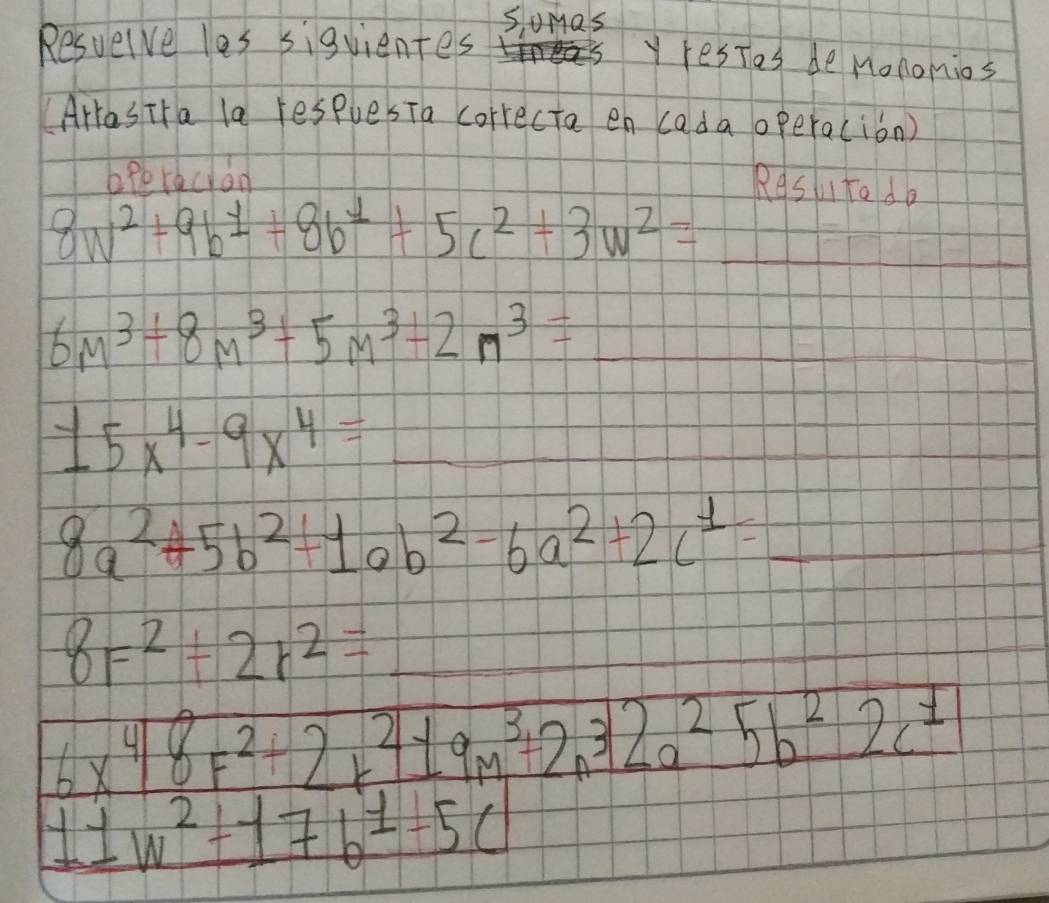 sumas
Resuelve las siguientes y restas de monomios
(Arrastra la respuesta correcta en cada operación)
operación Resultado
8w² + 9b¹ + 8b¹ + 5c² + 3w² = ____
6m³ + 8m³ + 5m³ + 2n³ = ____
15x⁴ - 9x⁴ = ____
8a² + 5b² + 10b² - 6a² + 2c¹ = ____
8F² + 2r² = ____
6x⁴ 8F² + 2r² 19m³ + 2n³ 2a² 5b² 2c¹
11w² + 17b¹ + 5c